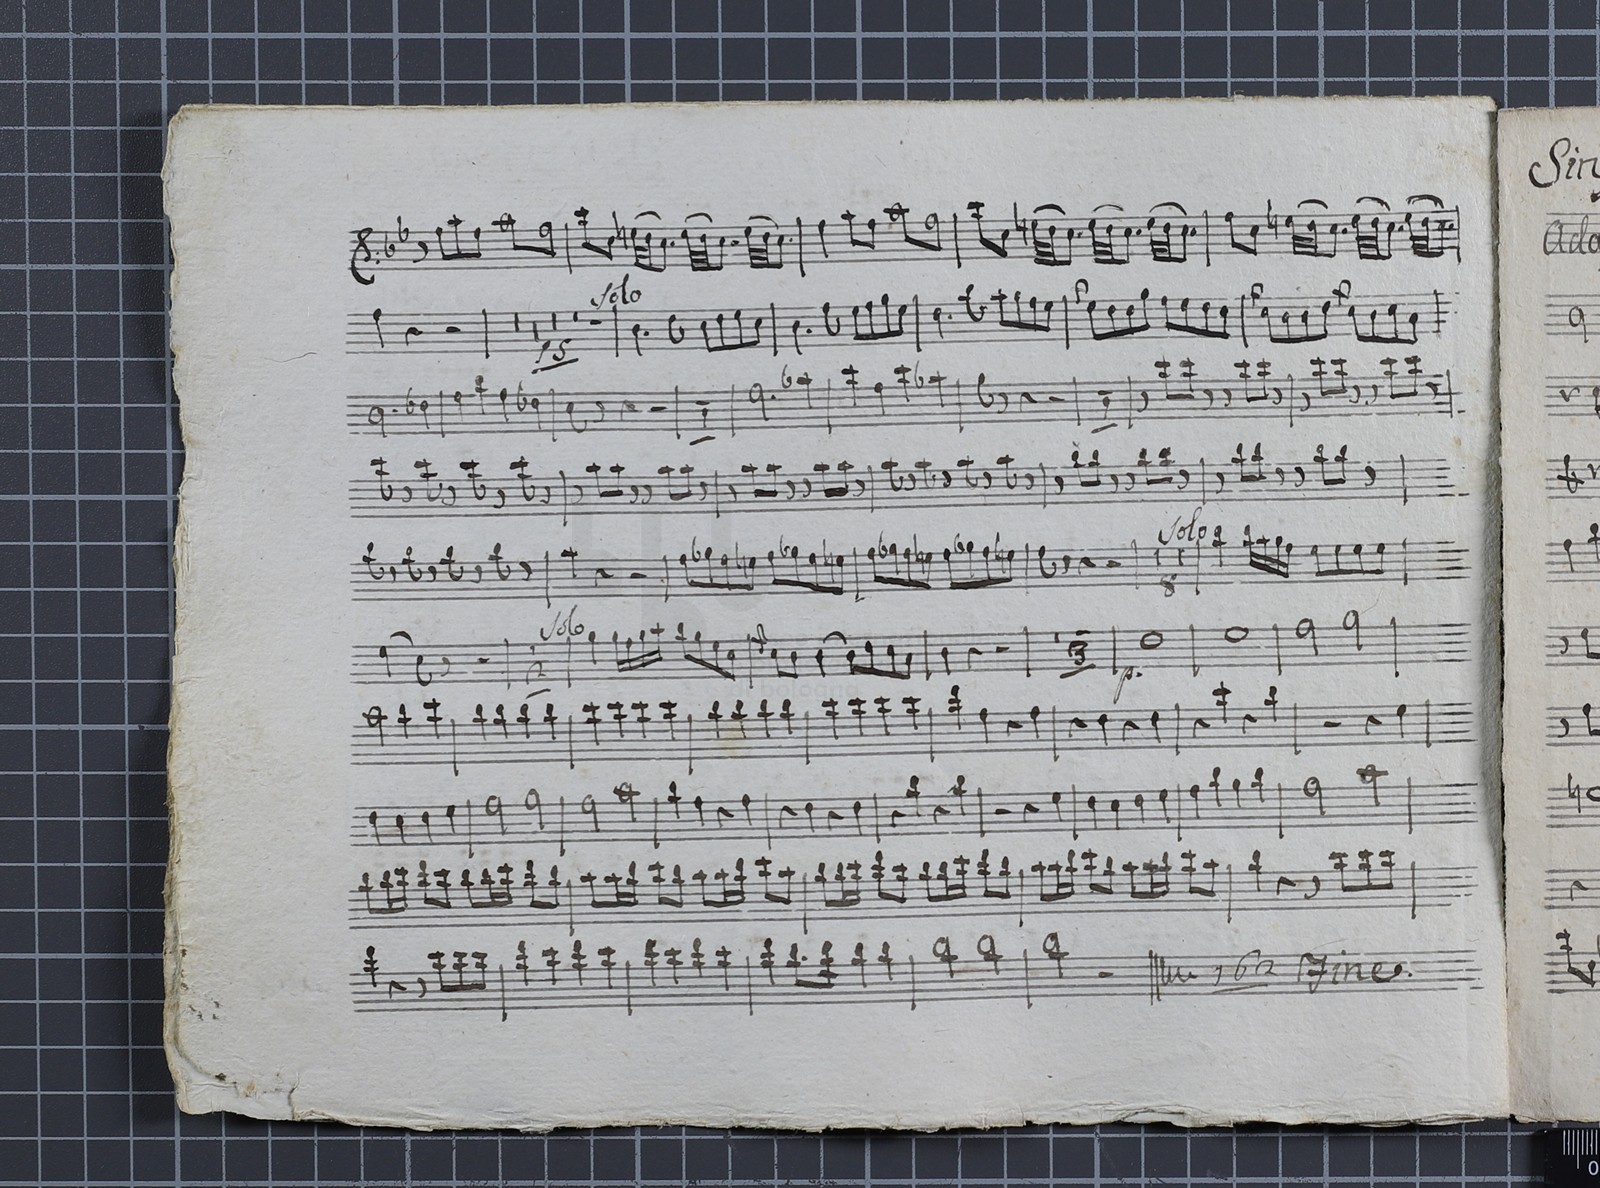 Solo
15
Solo
8
Solo
2
3
p.
162 Fine.
Sin
Ado
0